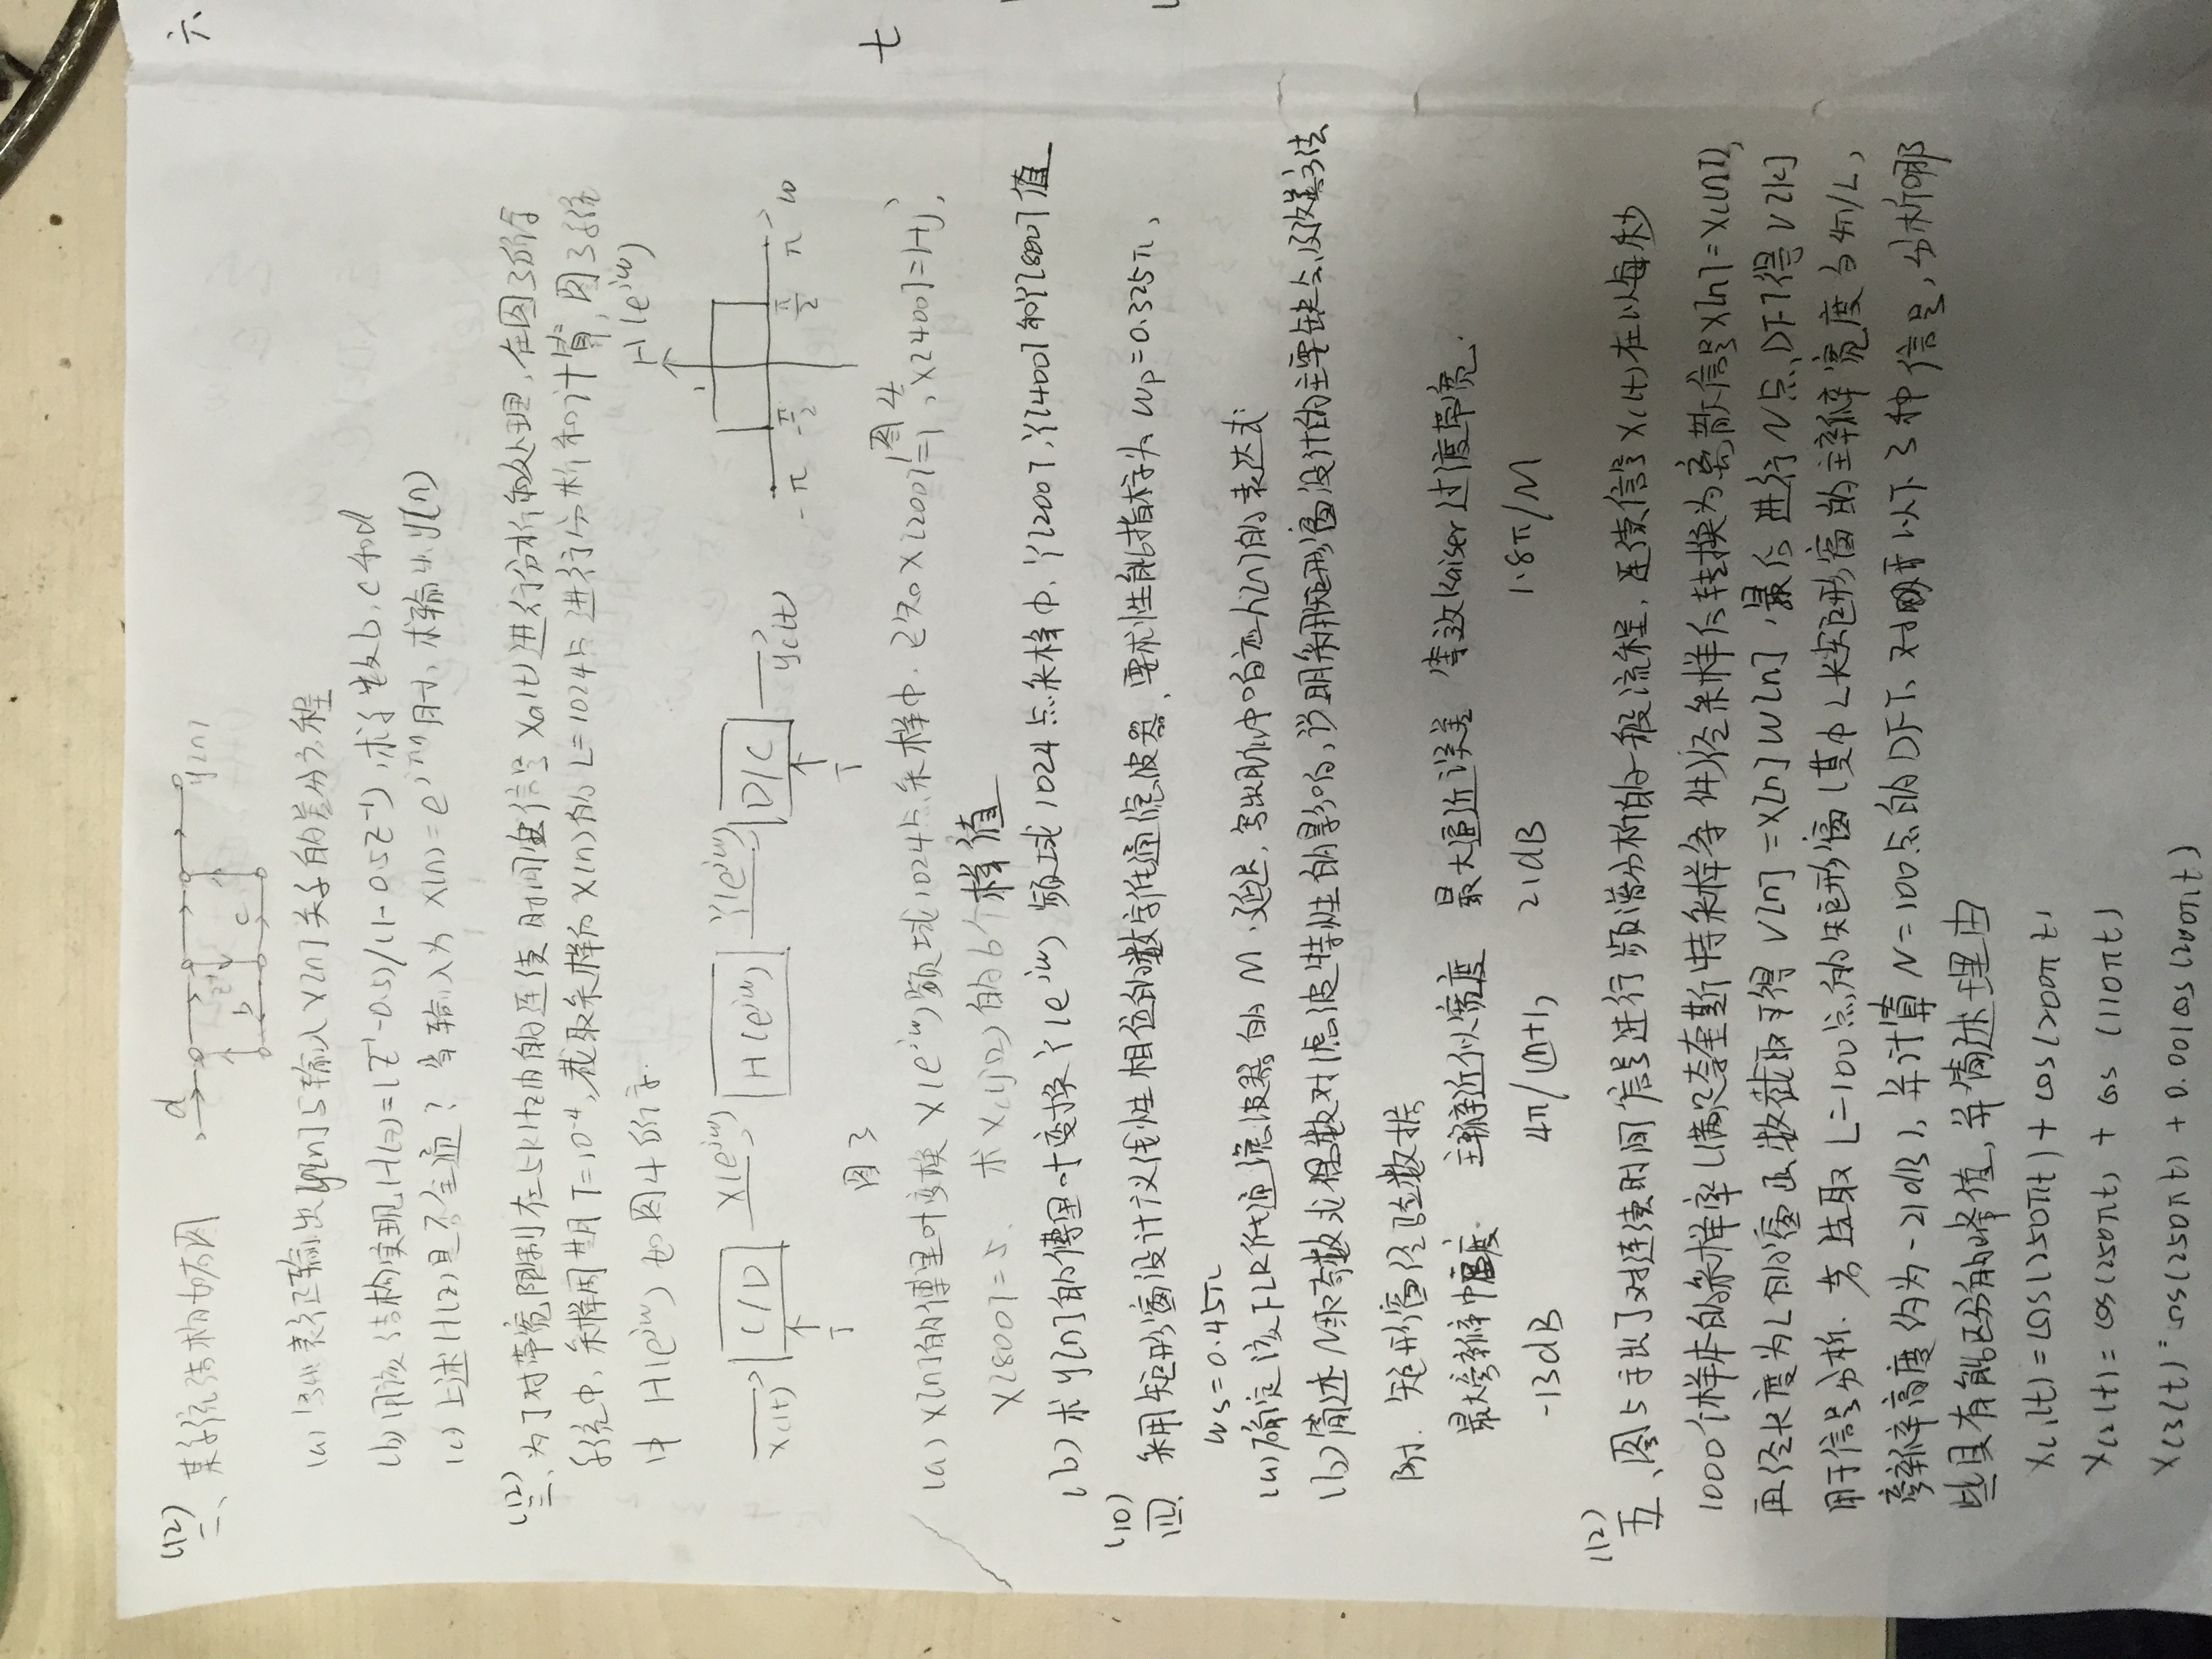 (12)
二、某系统结构如右图
d
z⁻¹
y[n]
b
c
(a) 写出表征输出y[n]与输入x[n]关系的差分方程
(b) 用该结构实现H(z)=(z⁻¹-0.5)/(1-0.5z⁻¹),求系数b,c和d
(c) 上述H(z)是否全通? 当输入为 x(n)=e^{jπn}时,求输出y(n)
(12)
三、为了对带宽限制在5kHz内的连续时间信号xa(t)进行分析和处理,在图3所示
系统中,采样周期T=10⁻⁴,截取采样后x(n)的L=1024点进行分析和计算,图3系统
中 H(e^{jω}) 如图4所示.
H(e^{jω})
1
X(e^{jω})
Y(e^{jω})
xc(t)
C/D
H(e^{jω})
D/C
yc(t)
T
T
-π
-π/2
π/2
π
ω
图3
图4
(a) x[n]的傅里叶变换 X(e^{jω})频域1024点采样中,已知X[200]=1,X[400]=1+j,
X[800]=5. 求Xc(jΩ)的6个样值
(b) 求y[n]的傅里叶变换Y(e^{jω}) 频域1024点采样中,Y[200],Y[400]和Y[800]值
(10)
四、采用矩形窗设计广义线性相位的数字低通滤波器,要求性能指标为 ωp=0.325π,
ωs=0.45π
(a)确定该FIR低通滤波器的M、延迟,写出脉冲响应h[n]的表达式
(b)简述N取奇数或偶数对滤波特性的影响,说明采用矩形窗设计的主要缺点及改善方法
附. 矩形窗经验数据
最大旁瓣幅度. 主瓣近似宽度 最大逼近误差 等效Kaiser过渡带宽.
-13dB 4π/(m+1) 21dB 1.8π/M
(12)
五、图5示出了对连续时间信号进行频谱分析的一般流程,连续信号xc(t)在以每秒
1000个样本的采样率(满足奈奎斯特采样条件)经采样后转换为离散信号x[n]=xc(nT),
再经长度为L的窗函数截取可得 v[n]=x[n]w[n],最后进行N点DFT得V[k]
用于信号分析. 若选取L=100点的矩形窗(其中L长矩形窗的主瓣宽度为4π/L,
旁瓣高度约为-21dB),并计算N=100点的DFT、对于以下3种信号,分析哪
些具有能区分的峰值,并简述理由
xc1(t)=cos(250πt)+cos(200πt)
xc2(t)=cos(250πt)+cos(110πt)
xc3(t)=cos(250πt)+0.001cos(200πt)
六、
七